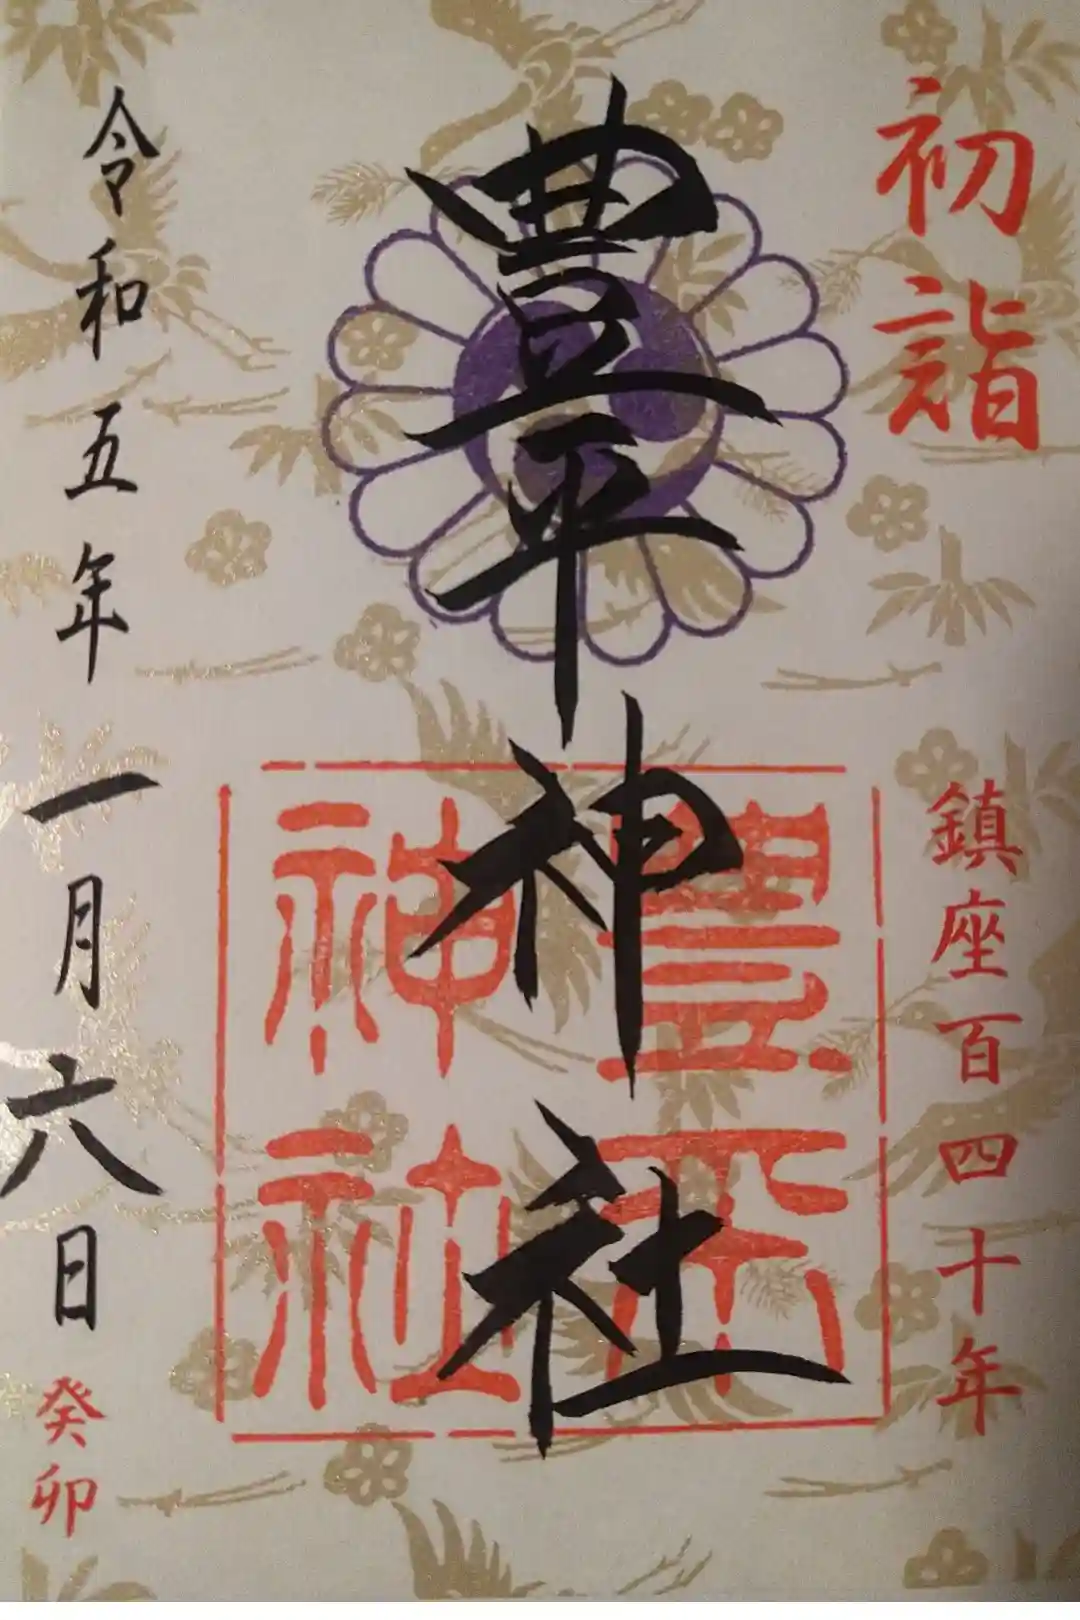 初詣
鎮座百四十年
豊平神社
豐平
神社
令和五年一月六日
癸卯